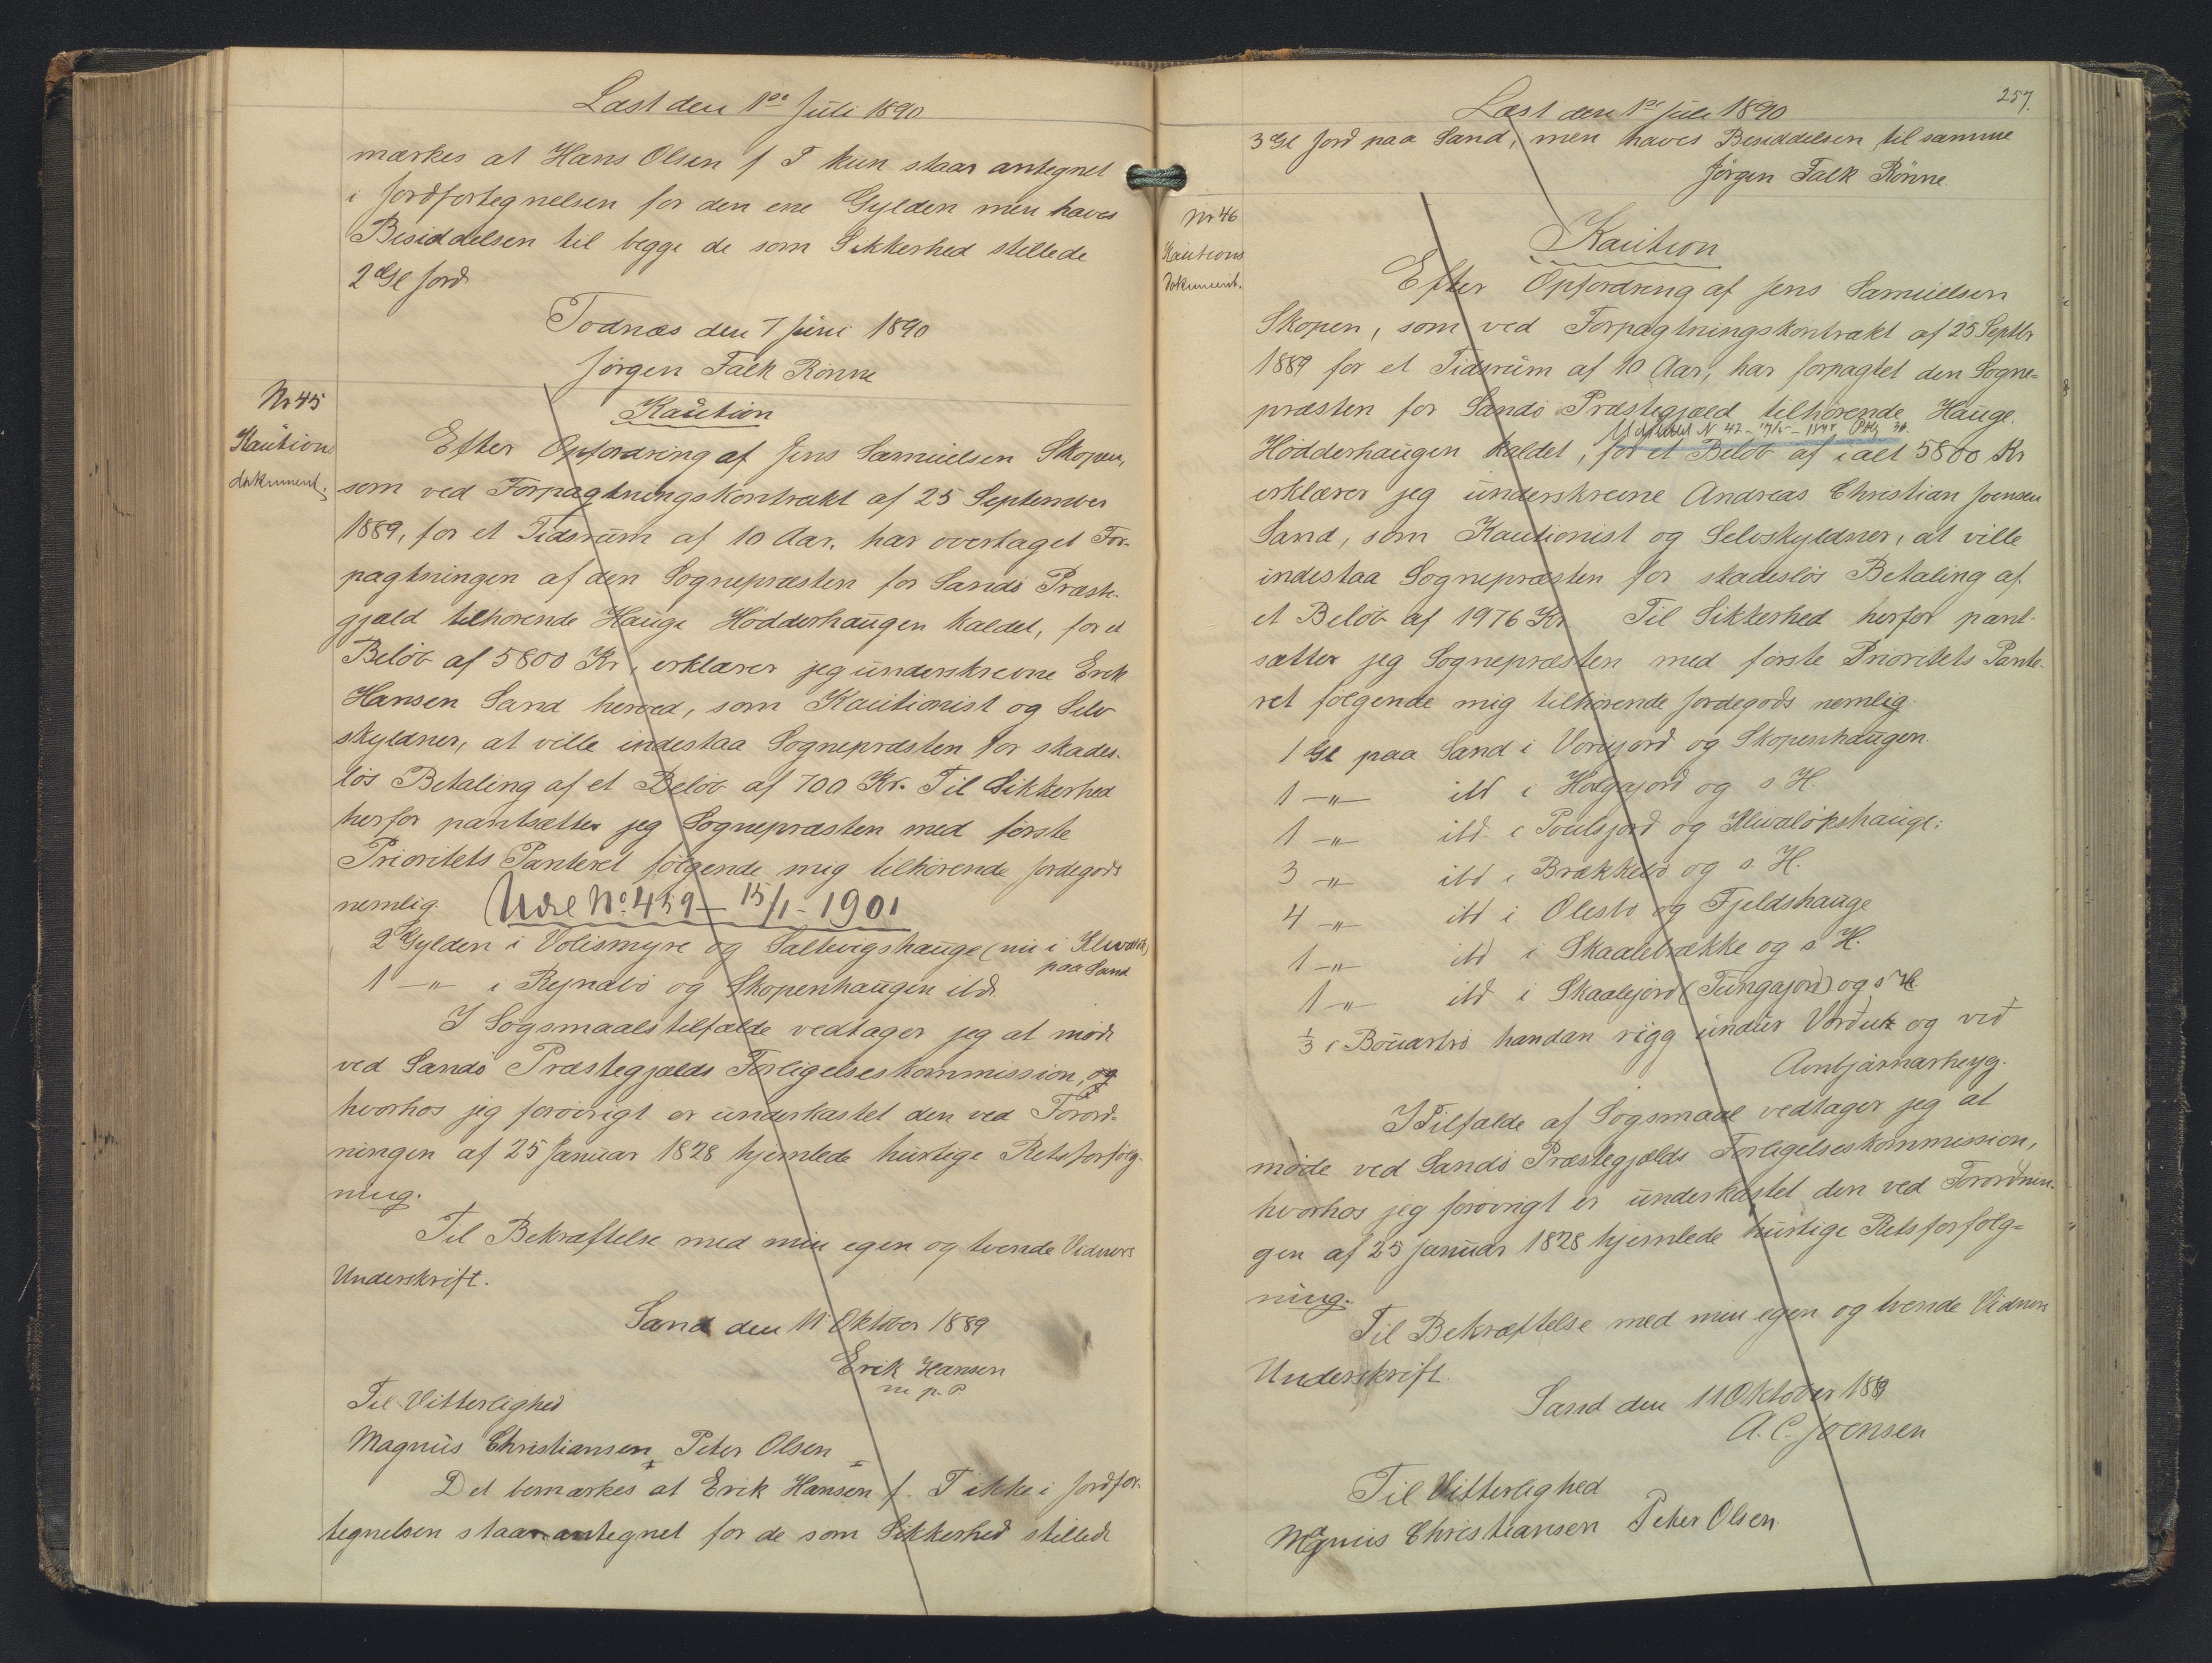 Læst den 1ste Juli 1890
mærkes at Hans Olsen f T kun staar antegnet
i Jordfortegnelsen for den ene Gylden men haves
Besiddelsen til begge de som Sikkerhed stillede
2 Gl Jord
Todnæs den 7 Juni 1890
Jörgen Falk Rönne
Nr 45
Kautions
dokument.
Kaution
Efter Opfordring af Jens Samuelsen Skopen,
som ved Forpagtningskontrakt af 25 September
1889, for et Tidsrum af 10 Aar, har overtaget For-
pagtningen af den Sognepræsten for Sandö Præste-
gjæld tilhörende Hauge Hödderhaugen kaldet, for et
Belöb af 5800 Kr, erklærer jeg underskrevne Erik
Hansen Sand herved, som Kautionist og Selv
skyldner, at ville indestaa Sognepræsten for skades-
lös Betaling af et Belöb af 700 Kr. Til Sikkerhed
herfor pantsætter jeg Sognepræsten med förste
Prioritets Panteret fölgende mig tilhörende Jordegods
nemlig.
Udsl No. 459 - 15/1 - 1901
2 Gylden i Volismyre og Saltvigshauge (nu i
paa Sand
1 -"- i Rejnabö og Skopenhaugen ibd.
I Sögsmaalstilfælde vedtager jeg at möde
ved Sandö Præstegjælds Forligelseskommission, og
hvorhos jeg forövrigt er underkastet den ved Forord-
ningen af 25 Januar 1828 hjemlede hurtige Retsforfölg-
ning.
Til Bekræftelse med min egen og tvende Vidners
Underskrift.
Sand den 11 Oktober 1889
Erik Hansen
m p. P
Til Vitterlighed
Magnus Christiansen Peter Olsen
Det bemærkes at Erik Hansen f. T ikke i Jordfor-
tegnelsen staar antegnet for de som Sikkerhed stillede
257.
Læst den 1ste Juli 1890
3 Gl Jord paa Sand, men haves Besiddelsen til samme
Jörgen Falk Rönne
Nr 46
Kautions
dokument.
Kaution
Efter Opfordring af Jens Samuelsen
Skopen, som ved Forpagtningskontrakt af 25 Septbr
1889 for et Tidsrum af 10 Aar, har forpagtet den Sogne-
præsten for Sandö Præstegjæld tilhörende Hauge
Udslettet N 42
Hödderhaugen kaldet, for et Belöb af ialt 5800 Kr
erklærer jeg underskrevne Andreas Christian Joensen
Sand, som Kautionist og Selvskyldner, at ville
indestaa Sognepræsten for skadeslös Betaling af
et Belöb af 1976 Kr. Til Sikkerhed herfor pant-
sætter jeg Sognepræsten med förste Prioritets Pante-
ret fölgende mig tilhörende Jordegods nemlig
1 Gl paa Sand i Vorijord og Skopenhaugen.
1 -"- ibd i Hölgajord og s H.
1 -"- ibd i Poulsjord og Klivalökshauge:
3 -"- ibd i Brækkebö og s. H.
4 -"- ibd i Olestö og Fjeldshauge
1 -"- ibd i Skaalebrække og s H.
1 -"- ibd i Skaalejord (Tungajord) og s H
1/3 i Böuartrö handan rigg undur Vorduk og við
Arnbjarnarheyg.
I Tilfælde af Sögsmaal vedtager jeg at
möde ved Sandö Præstegjælds Forligelseskommission,
hvorhos jeg forövrigt er underkastet den ved Forordnin-
gen af 25 Januar 1828 hjemlede hurtige Retsforfölg-
ning.
Til Bekræftelse med min egen og tvende Vidners
Underskrift.
Sand den 11 Oktober 1889
A. C. Joensen
Til Vitterlighed
Magnus Christiansen Peter Olsen